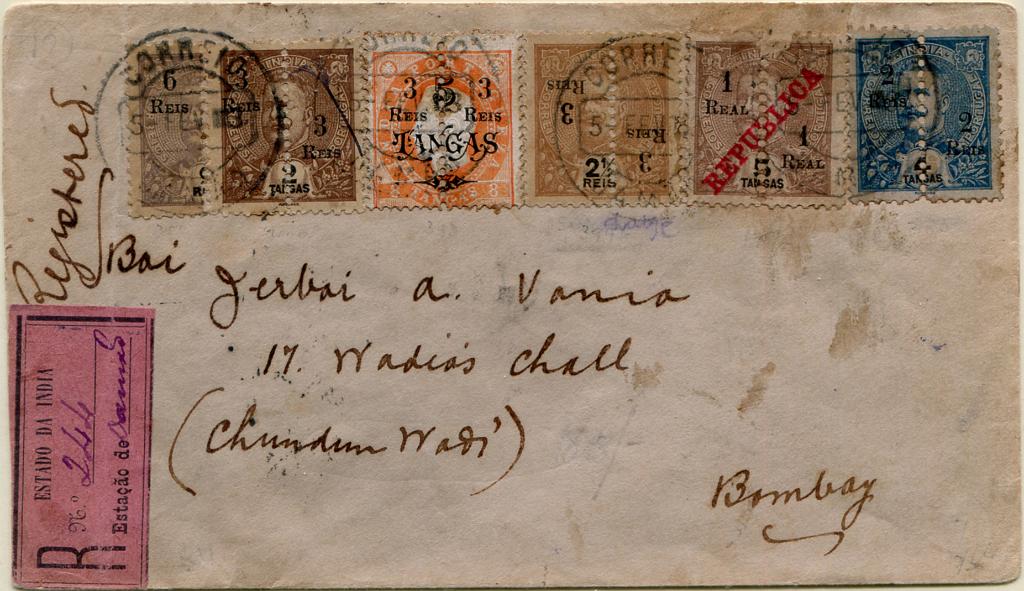 CORREIO
6
REIS
3
REIS
3
REIS
INDIA
2
TANGAS
3 5 3
REIS 2 REIS
TANGAS
CORREIO
3
REIS
3
REIS
2½
REIS
5 FEV
1
REAL
1
REAL
REPUBLICA
INDIA
5
TANGAS
2
REIS
2
REIS
INDIA
TANGAS
Registered.
Bai Jerbai a. Vania
17. Wadia's Chall
(Chundun Wadi)
Bombay
R
ESTADO DA INDIA
N.º 244
Estação de Damão